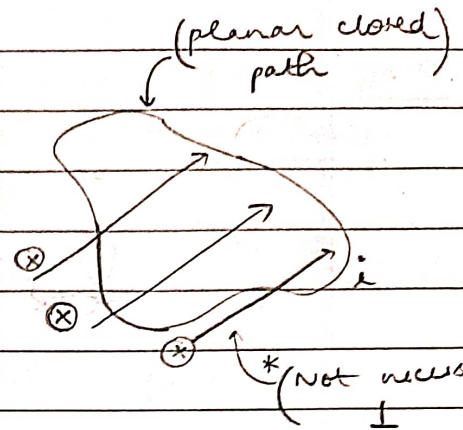 (planar closed)
path
i
*
(Not
⊥